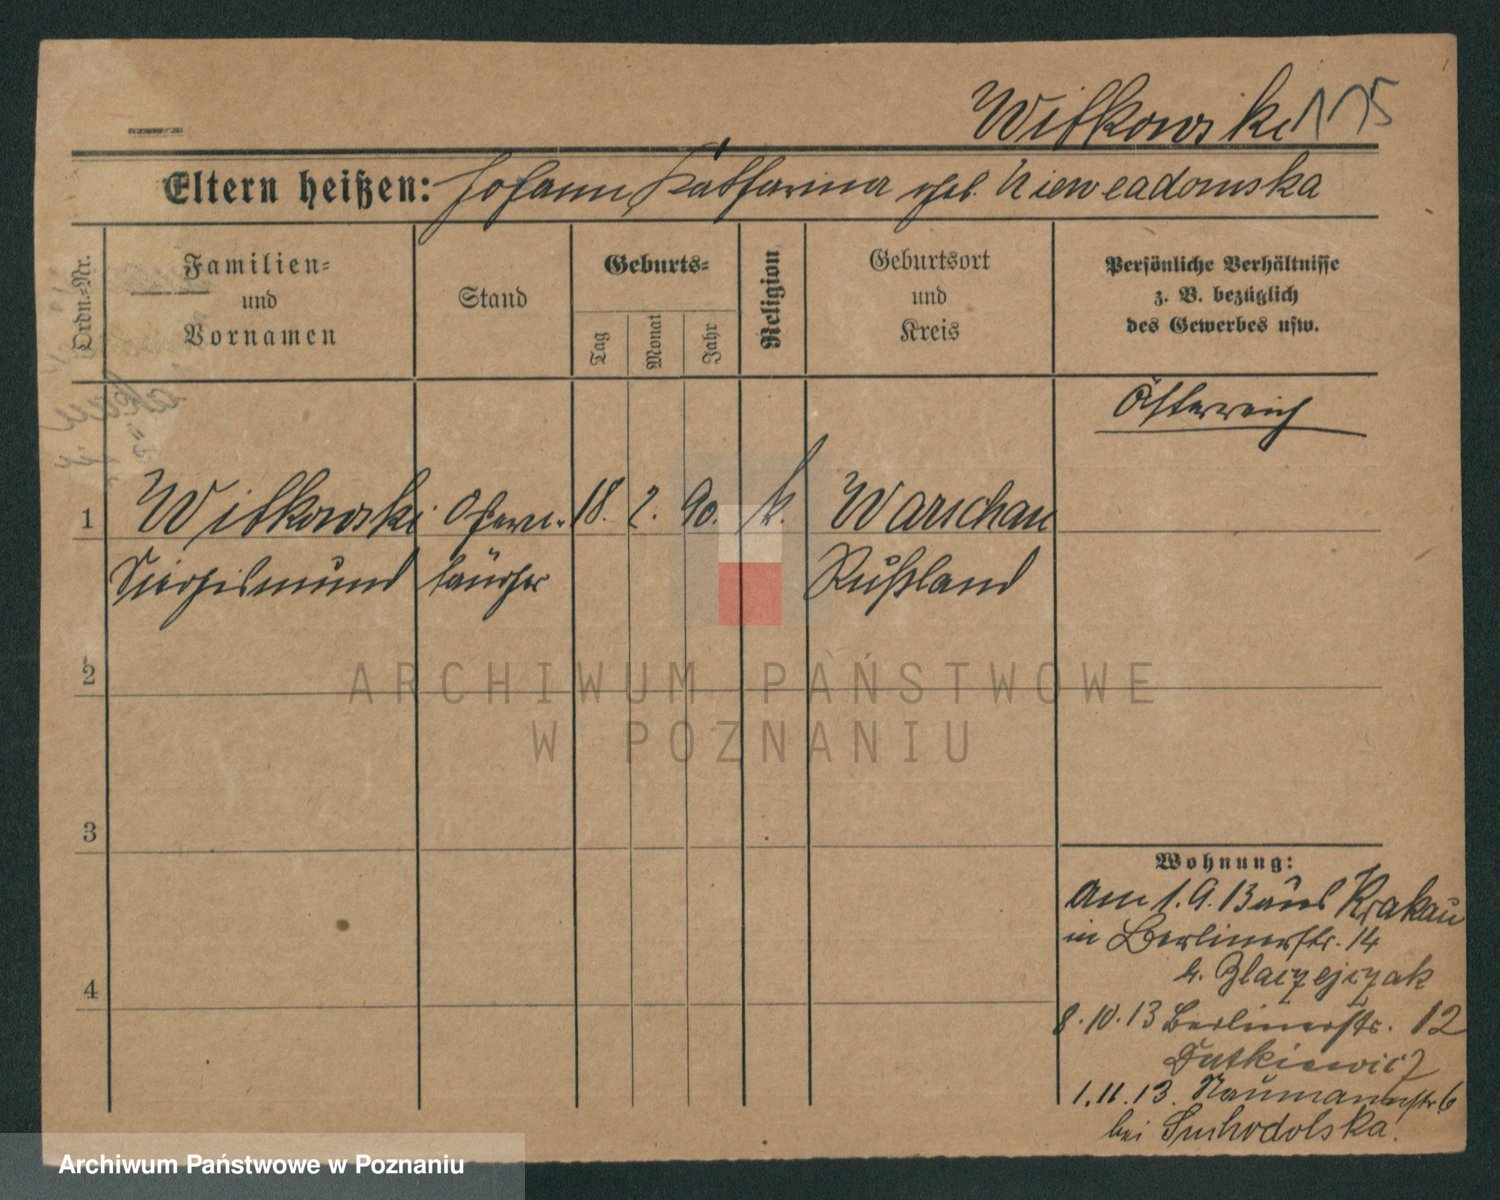 Witkowski 115
Eltern heißen: Johann, Katharina geb. Nieweadomska
Ordn.-Nr.
Familien-
und
Vornamen
Stand
Geburts-
Tag
Monat
Jahr
Religion
Geburtsort
und
Kreis
Persönliche Verhältnisse
z. B. bezüglich
des Gewerbes usw.
Österreich
1 Witkowski 18. 2. 90. k. Warschau
Siegismund Rußland
2
3
4
Wohnung:
am 1.9.13 aus Krakau
in Berlinerstr. 14
b. Blaczejczak
8.10.13 Berlinerstr. 12
Dutkiewicz
1.11.13. Naumannstr 6
bei Suchodolska.
ARCHIWUM PAŃSTWOWE
W POZNANIU
Archiwum Państwowe w Poznaniu